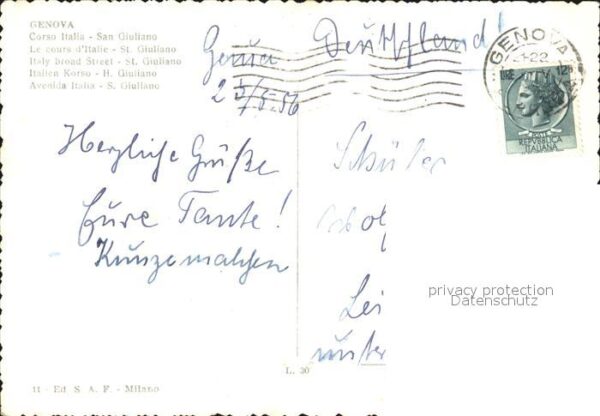 GENOVA
Corso Italia - San Giuliano
Le cours d'Italie - St. Giuliano
Italy broad Street - St. Giuliano
Italien Korso - H. Giuliano
Avenida Italia - S. Giuliano
Genua
Deutschland!
GENOVA
LIRE 12
REPVBBLICA
ITALIANA
Herzliche Grüße
Eure Tante!
Schüler
privacy protection
Datenschutz
L. 30
11 - Ed. S. A. F. - Milano